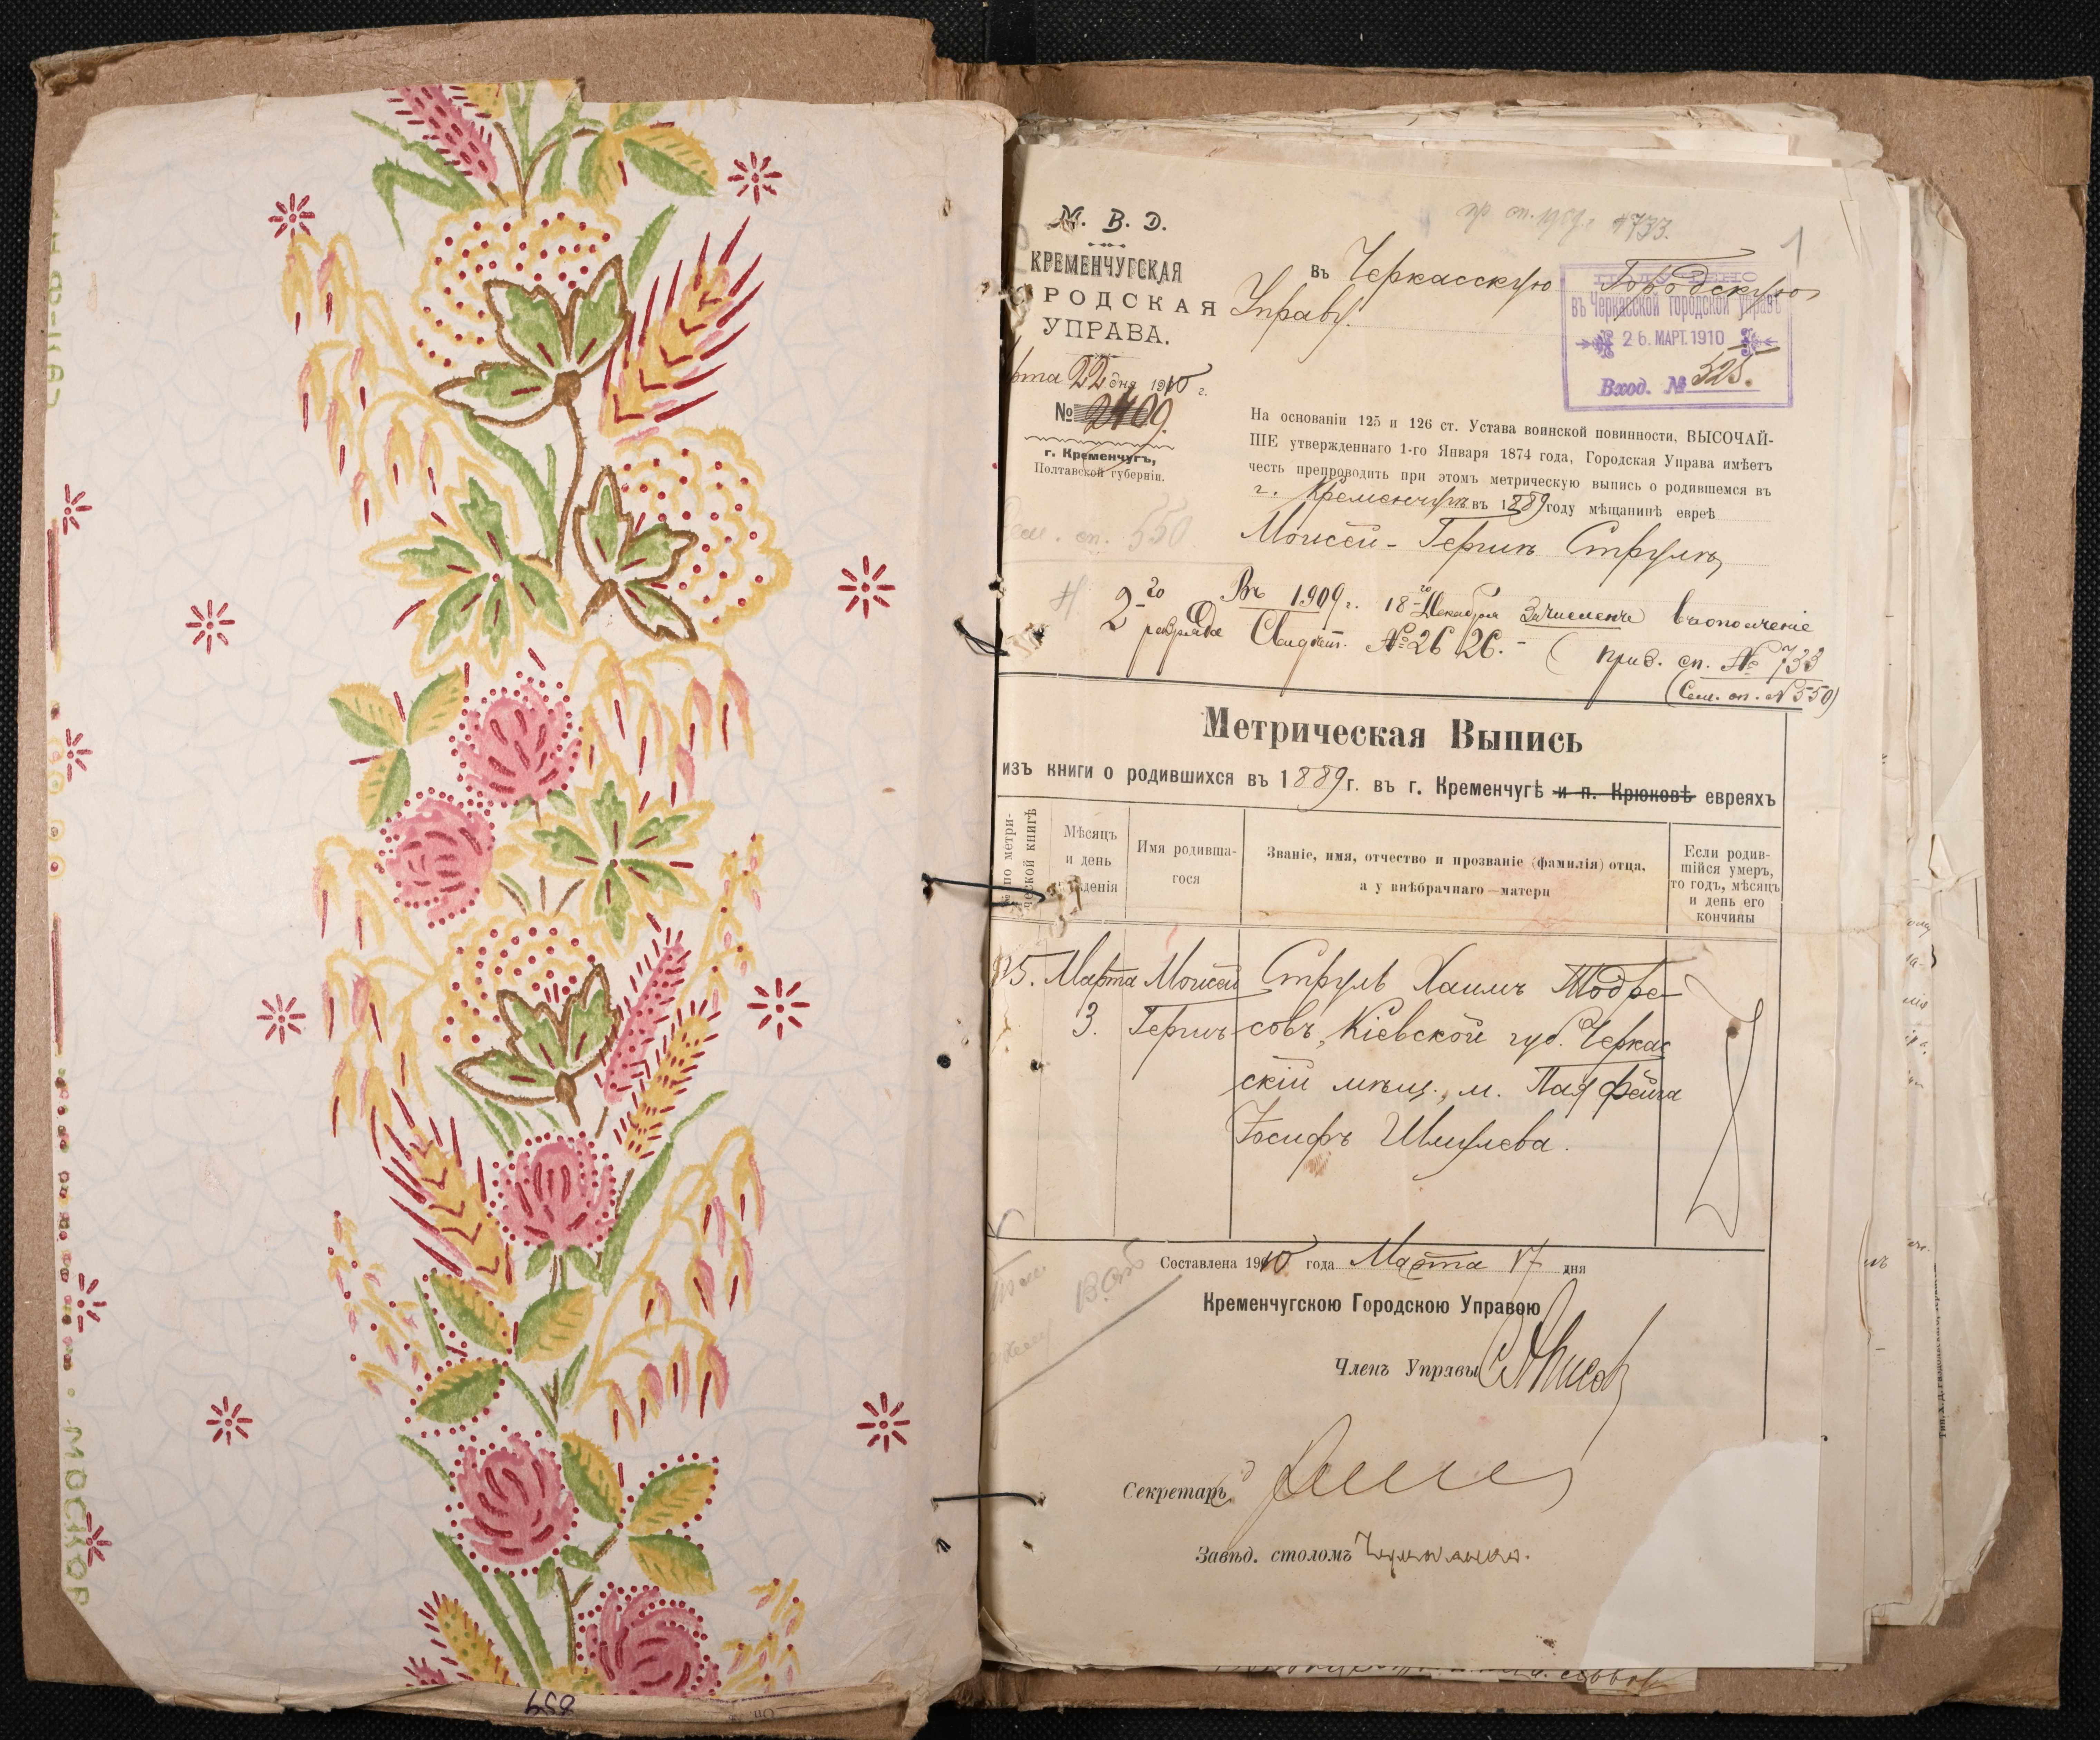 М. В. Д.
КРЕМЕНЧУГСКАЯ
РОДСКАЯ
УПРАВА.
22 дня 1910 г.
№ 2409.
г. Кременчугъ,
Полтавской губерніи.
сп. 550
733.
1
въ Черкасскую Городскую
Управу.
ПОЛУЧЕНО
въ Черкасской городской управѣ
26. МАРТ. 1910
Вход. № 525.
На основаніи 125 и 126 ст. Устава воинской повинности, ВЫСОЧАЙ-
ШЕ утвержденнаго 1-го Января 1874 года, Городская Управа имѣетъ
честь препроводить при этомъ метрическую выпись о родившемся въ
г. Кременчугѣ въ 1889 году мѣщанинѣ евреѣ
Моисей-Гершъ Струль
Въ 1909 г. 18-го Декабря зачисленъ въ ополченіе
2-го разряда Свидѣт. № 2626. - (приз. сп. № 733
(Сем. сп. № 550)
Метрическая Выпись
изъ книги о родившихся въ 1889 г. въ г. Кременчугѣ и п. Крюковѣ евреяхъ
по метри-
ческой книгѣ
Мѣсяцъ
и день
денія
Имя родивша-
гося
Званіе, имя, отчество и прозваніе (фамилія) отца,
а у внѣбрачнаго—матери
Если родив-
шійся умеръ,
то годъ, мѣсяцъ
и день его
кончины
Марта Моисей Струль Хаимъ Тодре-
3. Гершъ совъ, Кіевской губ. Черкас
скій мѣщ., м. Пая Фейга
Іосифъ Шмулева.
Составлена 1910 года Марта 17 дня
Кременчугскою Городскою Управою
Членъ Управы
Секретарь
Завѣд. столомъ
МОСКОВ
659